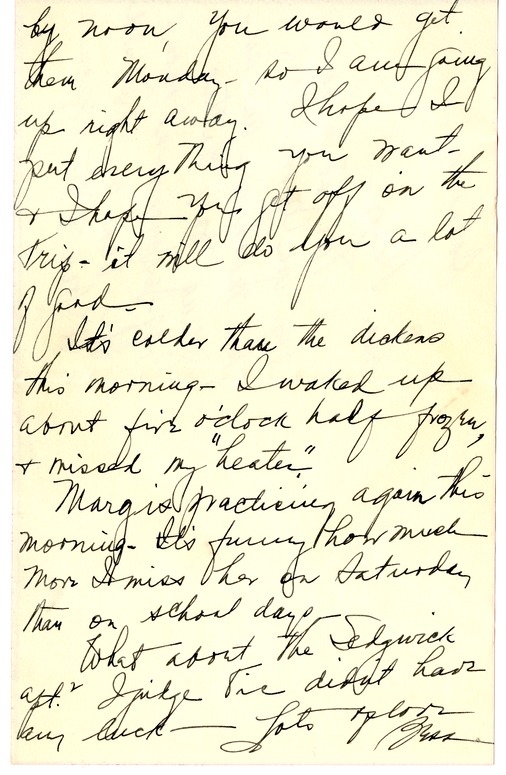 by noon, you would get
them Monday - so I am going
up right away. I hope I
put everything you want -
& I hope you get off on the
trip - it will do you a lot
of good -
It's colder than the dickens
this morning - I waked up
about five o'clock half frozen,
& missed my "heater".
Marg is practicing again this
morning - It's funny how much
more I miss her on Saturday
than on school days -
What about the Sedgwick
apt.? I judge Vic didn't have
any luck - Lots of love
Bess